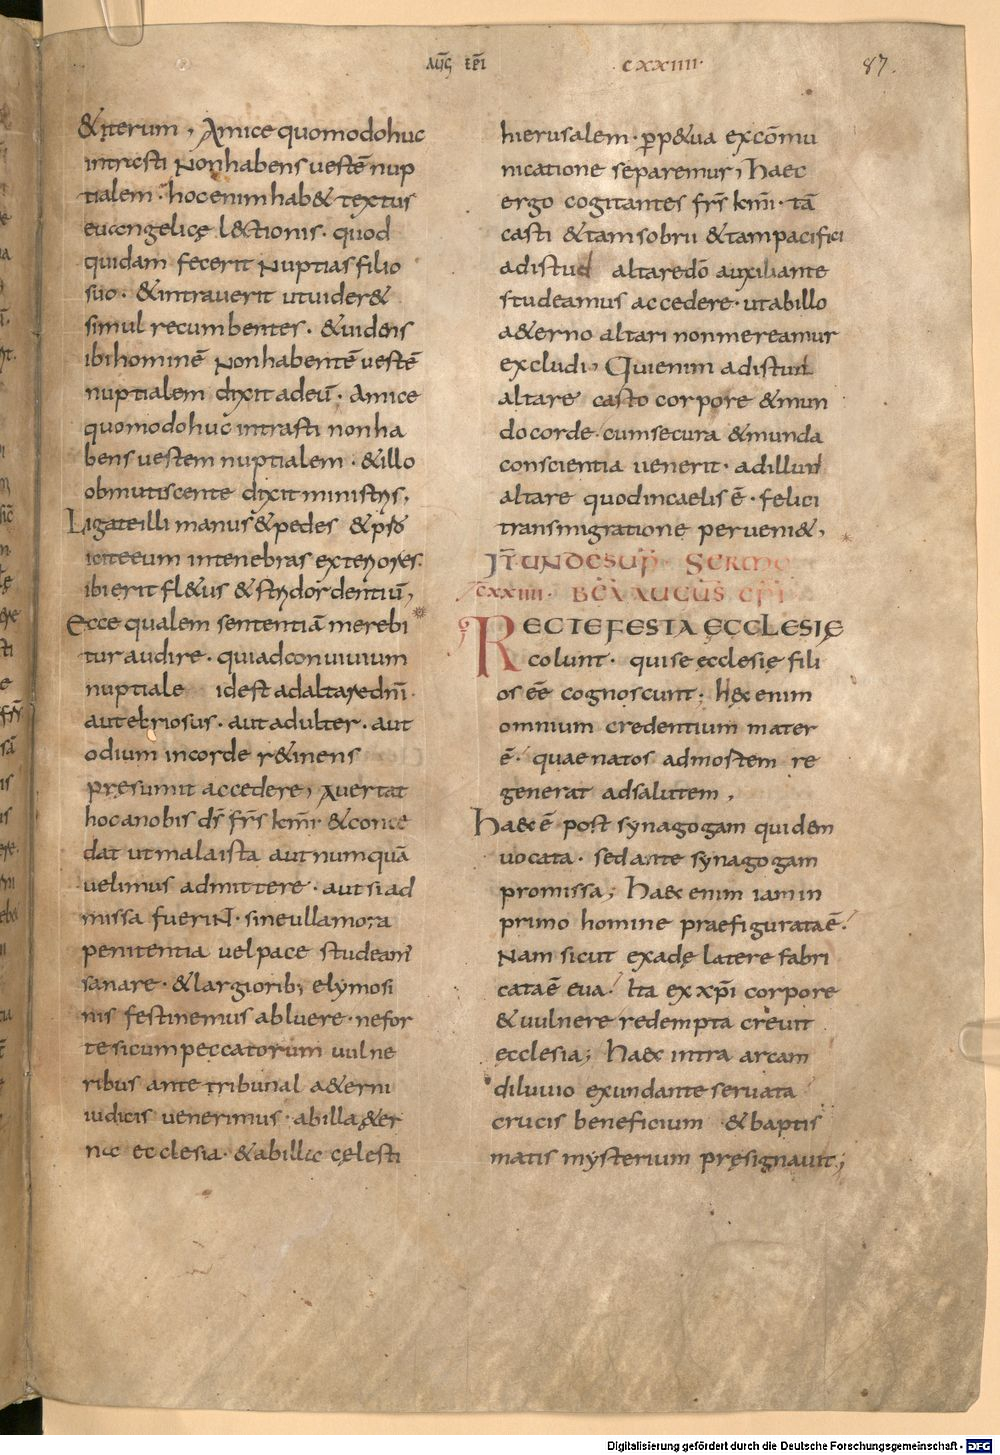 AUG̅ EP̅I CXXIIII· 87.
& iterum, Amice quomodo huc
intrasti Non habens uestē nup
tialem· hoc enim hab& textus
euangelicę l&tionis· quod
quidam fecerit Nuptias filio
suo· & intrauerit ut uider&
simul recumbentes· & uidens
ibi hominē Non habentē uestē
nuptialem dixit ad eū· Amice
quomodo huc intrasti non ha
bens uestem nuptialem· & illo
obmutiscente dixit ministris,
Ligate illi manus & pedes &
iciteeum in tenebras exteriores·
ibi erit fl&us & stridor dentiū,
Ecce qualem sententiā merebi
tur audire· qui ad conuiuium
nuptiale id est ad altare dn̄i·
aut ebriosus· aut adulter· aut
odium in corde r&inens
presumit accedere, Auertat
hoc a nobis d̅s fr̅s km̅i & conce
dat ut mala ista aut numquā
uelimus admittere· aut si ad
missa fueriNt· sine ulla mora
penitentia uel pace studeam̅
sanare· & largiorib; elymosi
nis festinemus abluere· ne for
te si cum peccatorum uulne
ribus ante tribunal a&erni
iudicis uenerimus· ab illa &er
na ecclesia· & ab illa cęlesti
hierusalem· p̲p&ua excōmu
nicatione separemur, Haec
ergo cogitantes fr̅s km̅i· tā
casti & tam sobrii & tam pacifici
ad istud altare dō auxiliante
studeamus accedere· ut ab illo
a&erno altari non mereamur
excludi, Qui enim ad istud
altare casto corpore & mun
do corde· cum secura & munda
conscientia uenerit· ad illud
altare quod in caelis ē· felici
transmigratione perueni&,
IT̅ UNDE SUP̅· SERMO
CXXIIII· BEA̅ AUGUS̅ EP̅I
RECTE FESTA ĘCCLESIĘ
colunt· qui se ęcclesię fili
os eē cognoscunt; Hęc enim
omnium credentium mater
ē· quae natos ad mortem re
generat ad salutem,
Haec ē post synagogam quidem
uocata· sed ante synagogam
promissa; Haec enim iam in
primo homine praefigurata ē·
Nam sicut ex adę latere fabri
cata ē eua· Ita ex xp̅i corpore
& uulnere redempta creuit
ecclesia; Haec intra arcam
diluuio exundante seruata
crucis beneficium & baptis
matis mysterium pręsignauit;
Digitalisierung gefördert durch die Deutsche Forschungsgemeinschaft - DFG